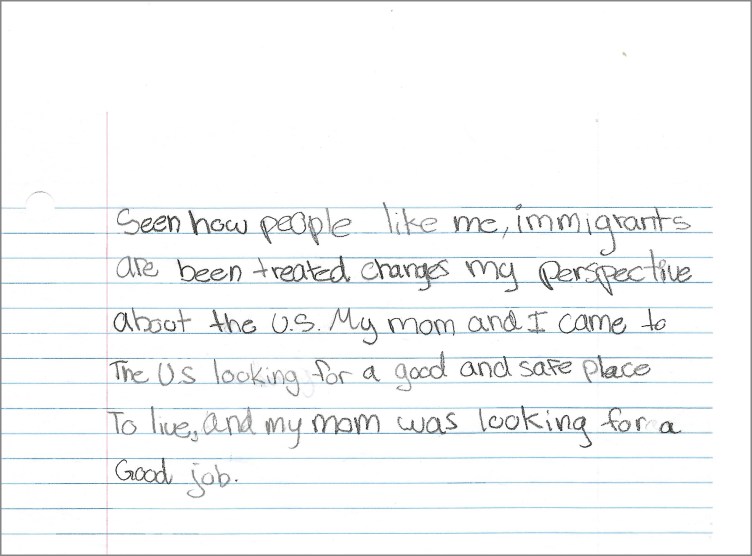 Seen how people like me, immigrants
are been treated changes my perspective
about the U.S. My mom and I came to
The U.S looking for a good and safe place
To live, and my mom was looking for a
Good job.